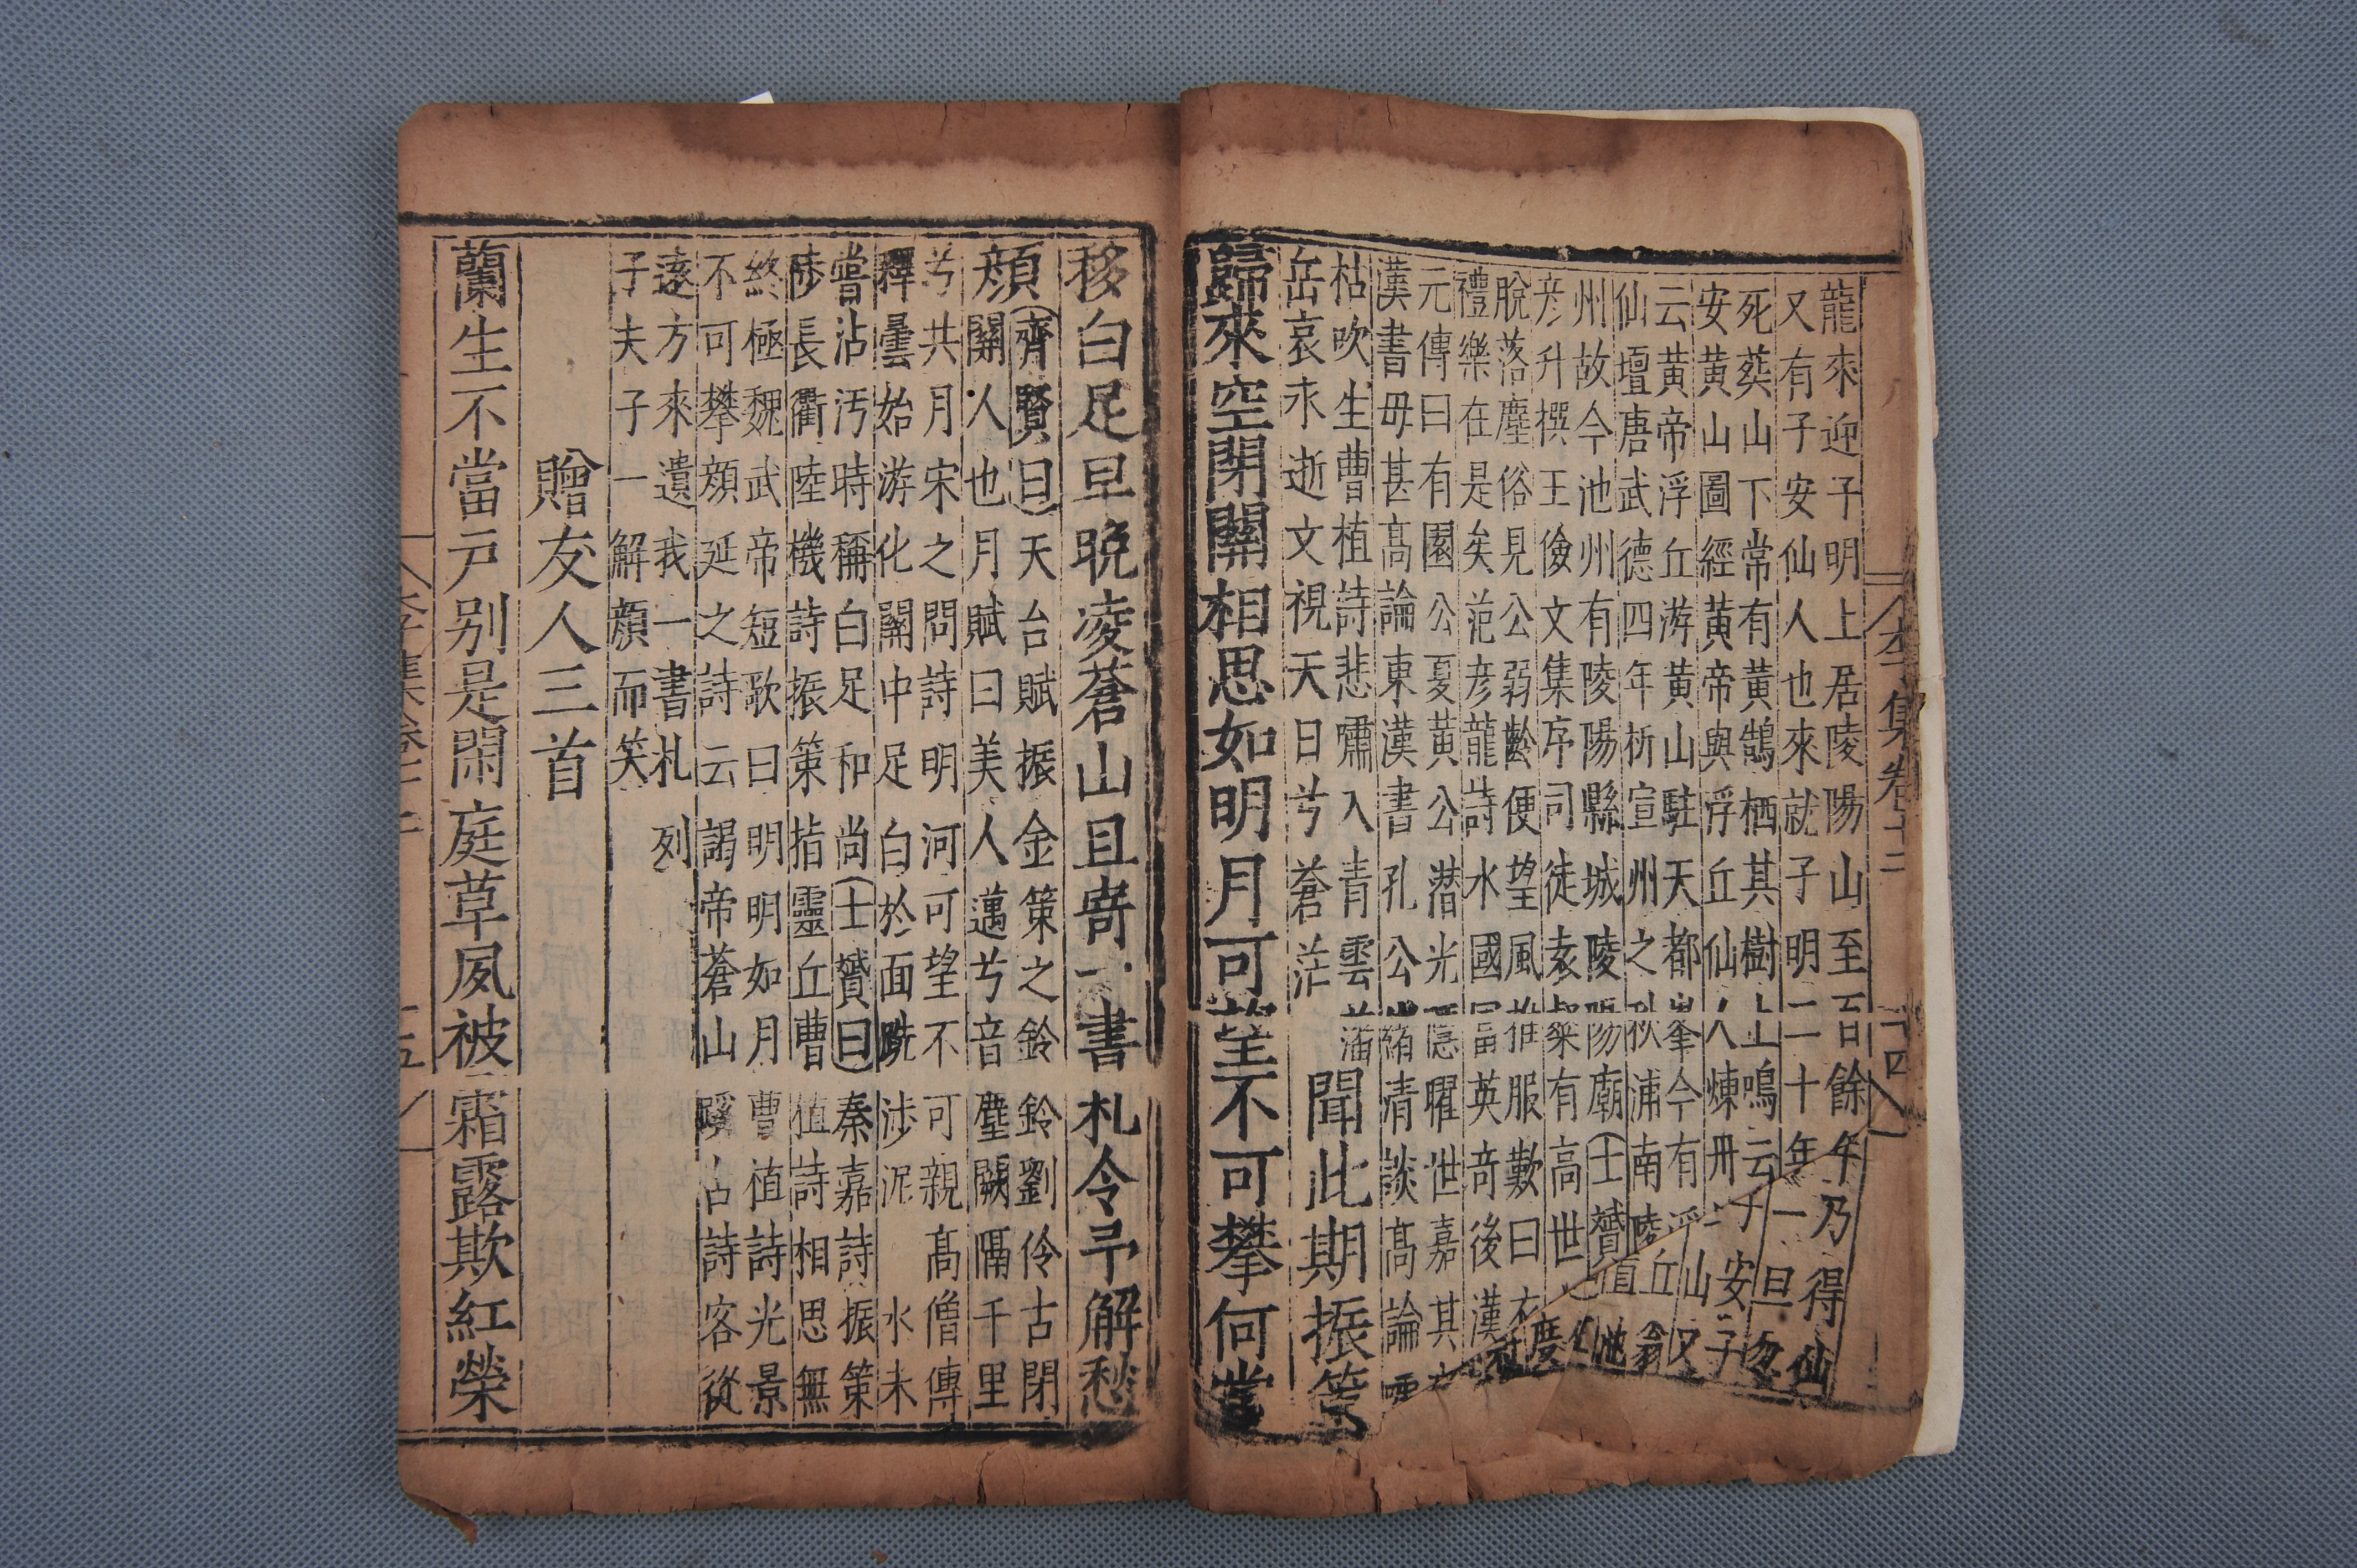 龍來迎子明上居陵陽山至百餘年乃得仙
又有子安仙人也來就子明二十年一旦忽
死葬山下常有黃鵠栖其樹上鳴云子安子
安黃山圖經黃帝與浮丘仙人煉丹山又
云黃帝浮丘游黃山駐天都峯今有浮丘翁
仙壇唐武德四年析宣州之秋浦南陵置池
州故今池州有陵陽縣城陵陽廟士贇曰
彥升撰王儉文集序司徒袁粲有高世度
脫落塵俗見公弱齡便望風推服歎曰衣
禮樂在是矣范彥龍詩水國冨英竒後漢
元傳曰有園公夏黃公潛光隱曜世嘉其
漢書毋甚高論東漢書孔公緒清談高論
枯吹生曹植詩悲嘯入青雲潘
岳哀永逝文視天日兮蒼茫
聞此期振策
歸來空閉關相思如明月可望不可攀何當
李集卷十二
十四
移白足早晚凌蒼山且寄一書札令予解愁
顏
齊賢曰天台賦振金策之鈴鈴劉伶古閉
關人也月賦曰美人邁兮音塵闕隔千里
兮共月宋之問詩明河可望不可親高僧傳
釋曇始游化關中足白於面跣涉泥水未
嘗沾汚時稱白足和尚士贇曰秦嘉詩振策
陟長衢陸機詩振策指靈丘曹植詩相思無
終極魏武帝短歌曰明明如月曹植詩光景
不可攀顏延之詩云謁帝蒼山蹊古詩客從
遠方來遺我一書札列
子夫子一解顏而笑
贈友人三首
蘭生不當戸別是閑庭草夙被霜露欺紅榮